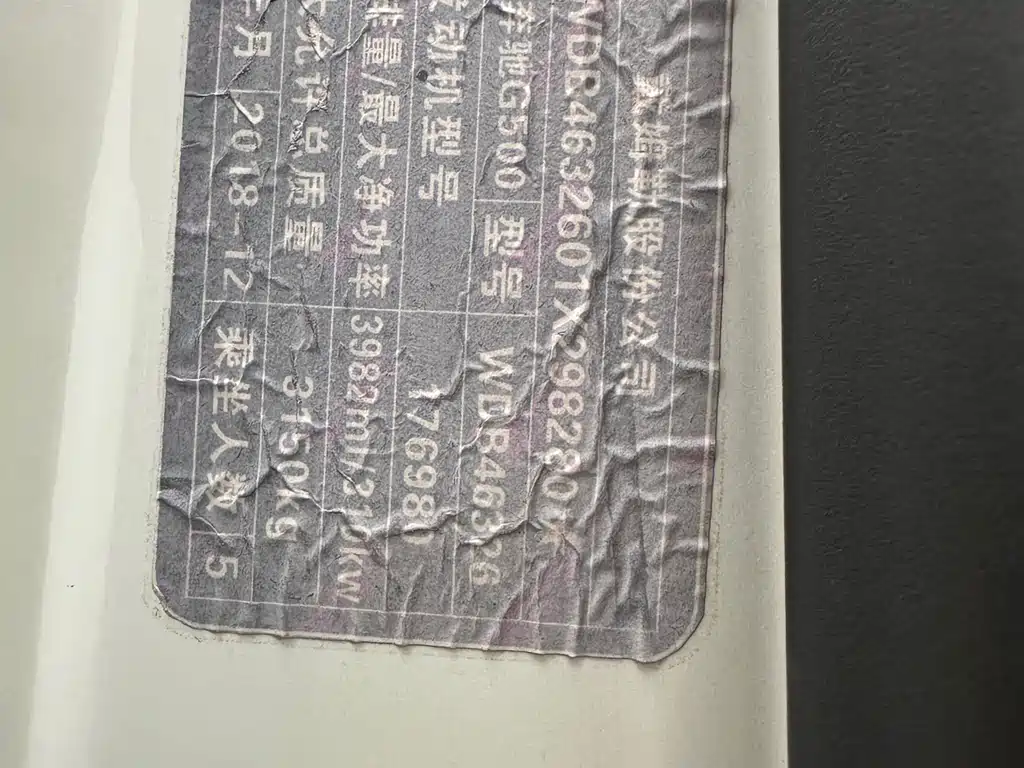 戴姆勒股份公司
WDB4632601X298280★
奔驰G500 型号 WDB463260
发动机型号 176980
排量/最大净功率 3982ml/310kw
大允许总质量 3150kg
年月 2018-12 乘坐人数 5